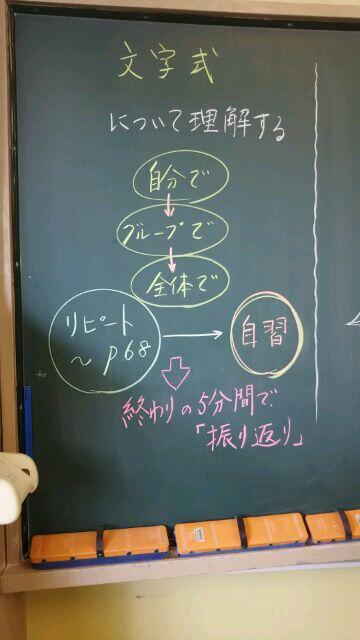 文字式
について理解する
自分で
グループで
全体で
リピート
～p68
自習
終わりの5分間で
「振り返り」